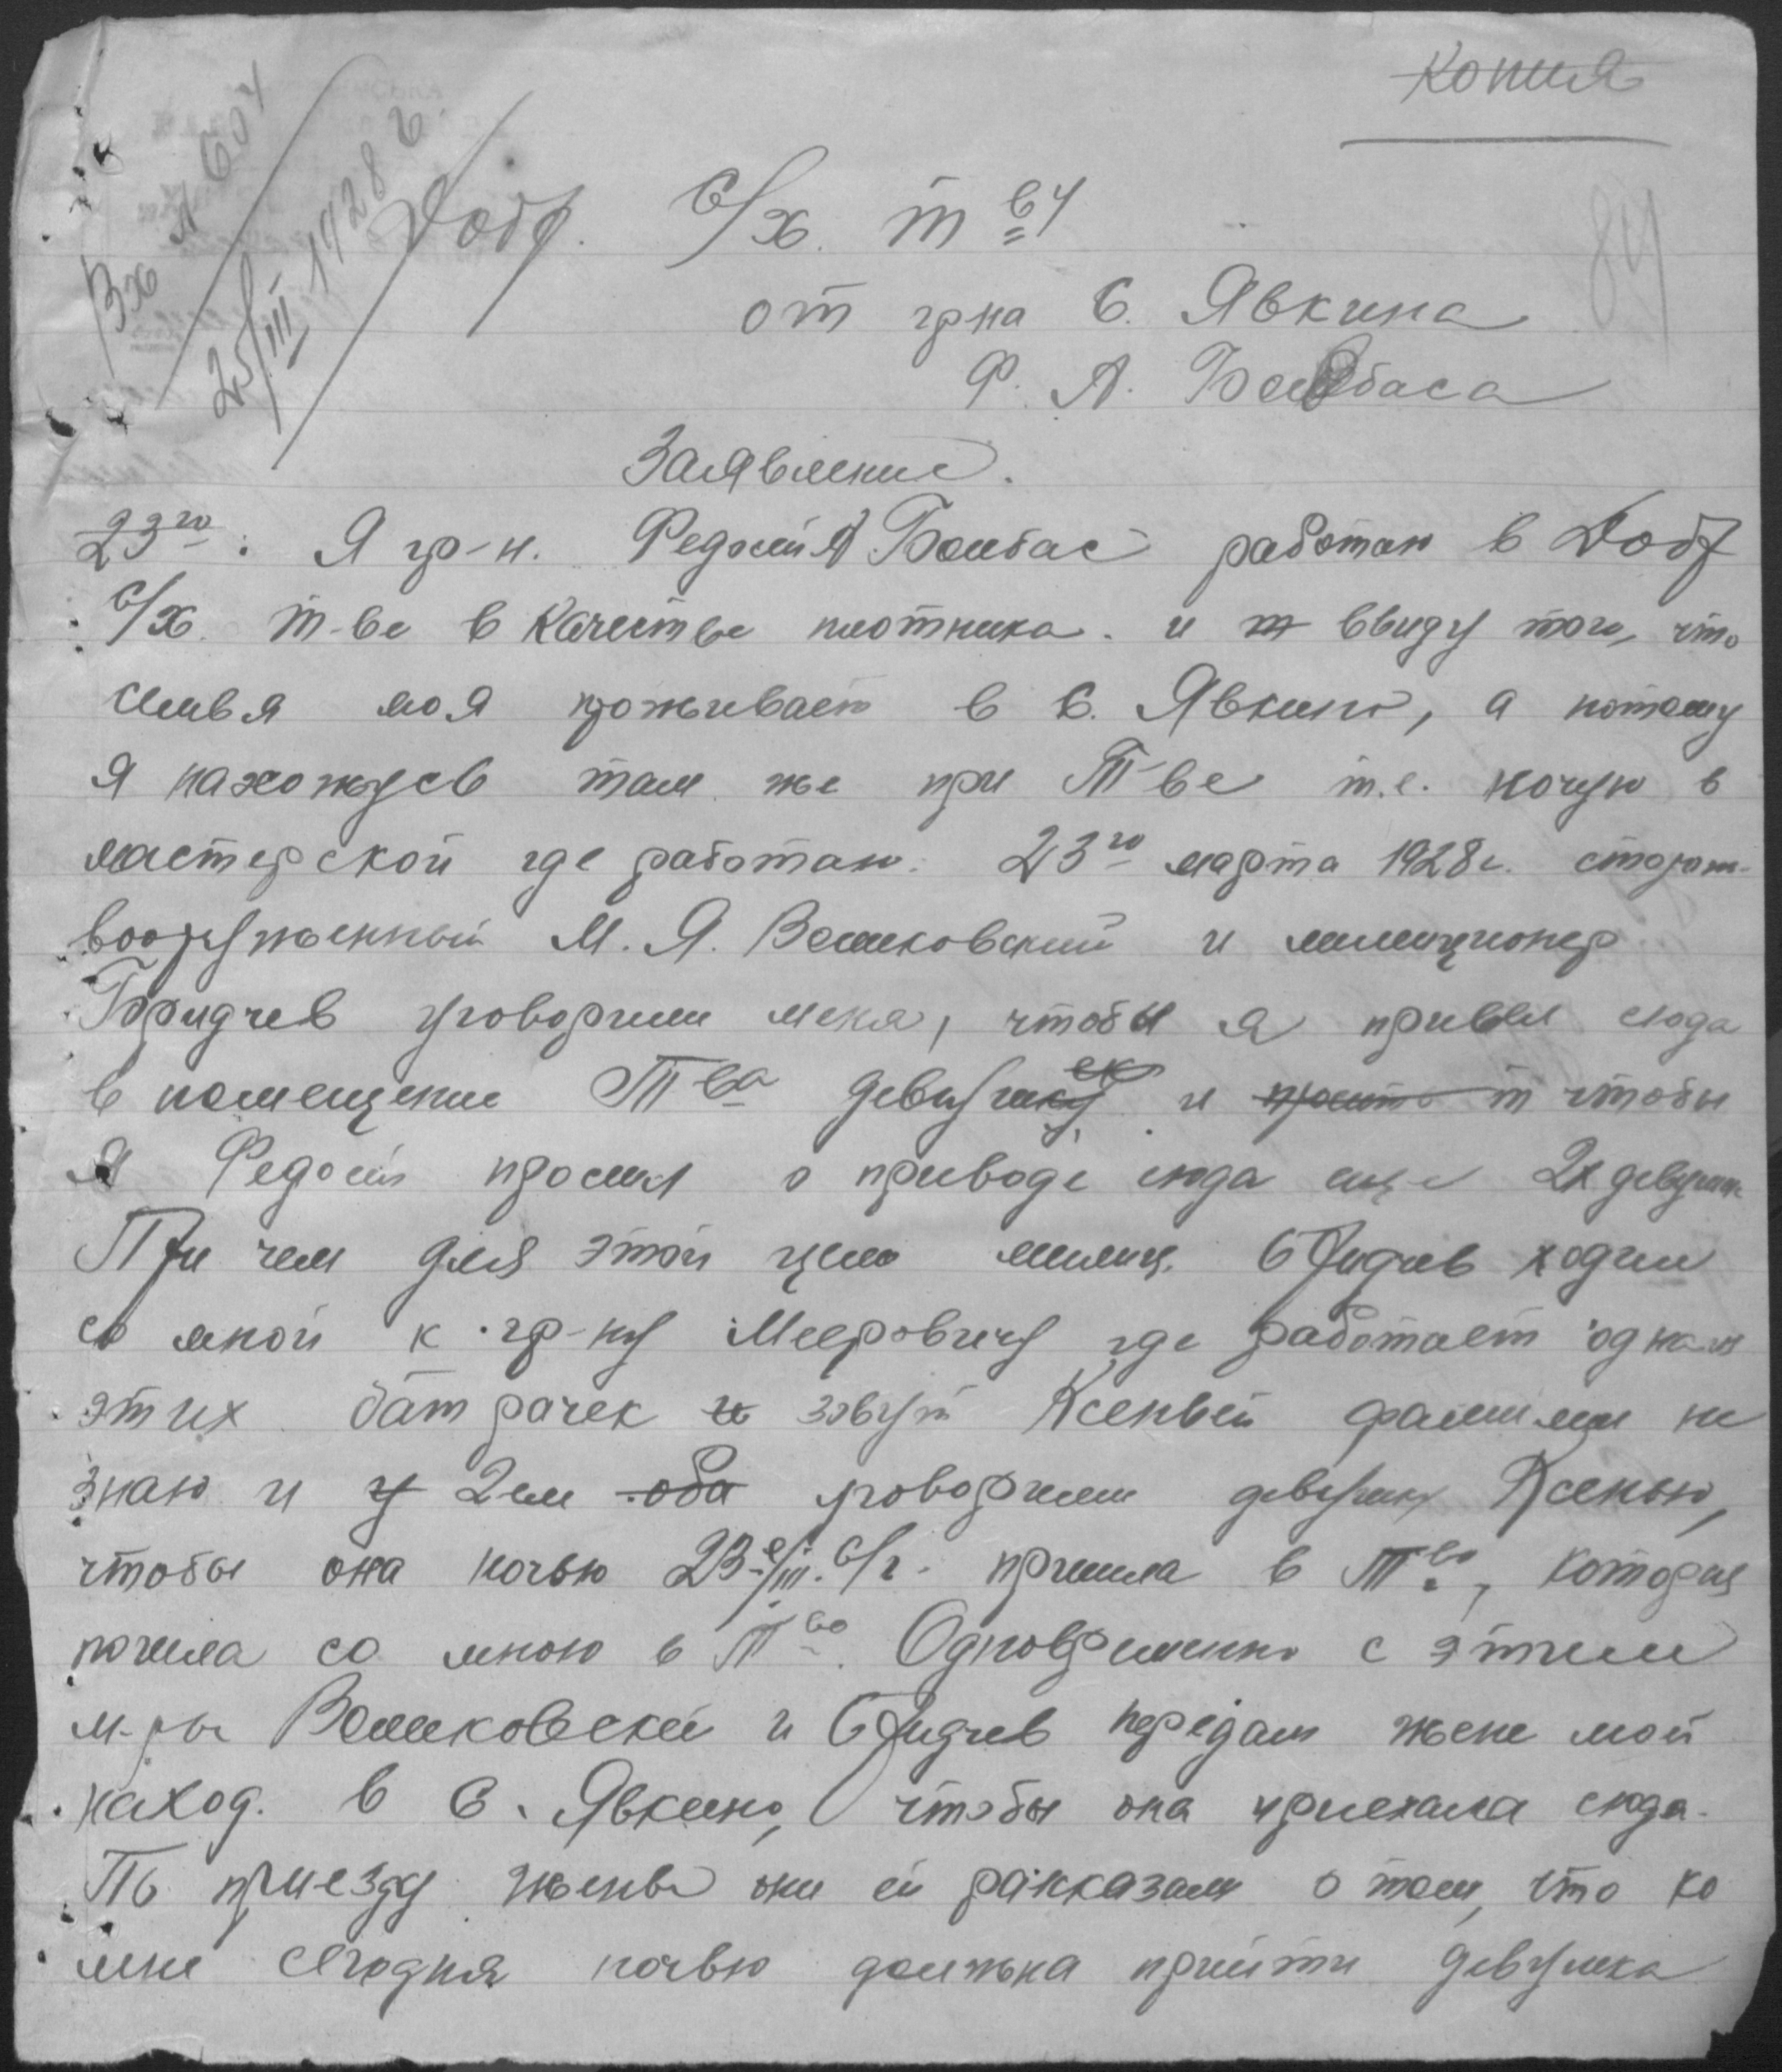 Копия
Вх № 604
25/III 1928 г.
Добр. С/х. т ву
84
от грна С. Явкина
Ф. А. Бомбаса
Заявление.
23го. Я гр-н. Федосий Бомбас работаю в Добр
С/х. т-ве в качестве плотника. и ввиду того, что
семья моя проживает в С. Явкино, а потому
я нахожусь там же при Т-ве т.е. ночую в
мастерской где работаю. 23го марта 1928г. сторож-
вооруженный М. Я. Воликовский и милиционер
уговорили меня, чтобы я привел сюда
в помещение Т-ва девушек и просит т чтобы
я Федосий просил о приводе сюда еще 2х девушек
При чем для этой цели милиц. ходил
со мной к гр-ну Мееровичу где работает одна из
этих батрачек и зовут Ксеньей фамилии не
знаю и у 2ем оба уговорили девушку Ксенью,
чтобы она ночью 23-е/III. С/г. пришла в Т-во, которая
ночила со мною в Т-во. Одновременно с этим
м-ры Воликовский и передали жене мой
наход. в С. Явкино, чтобы она приехала сюда.
По приезду жены они ей рассказали о том, что ко
мне сегодня ночью должна прийти девушка